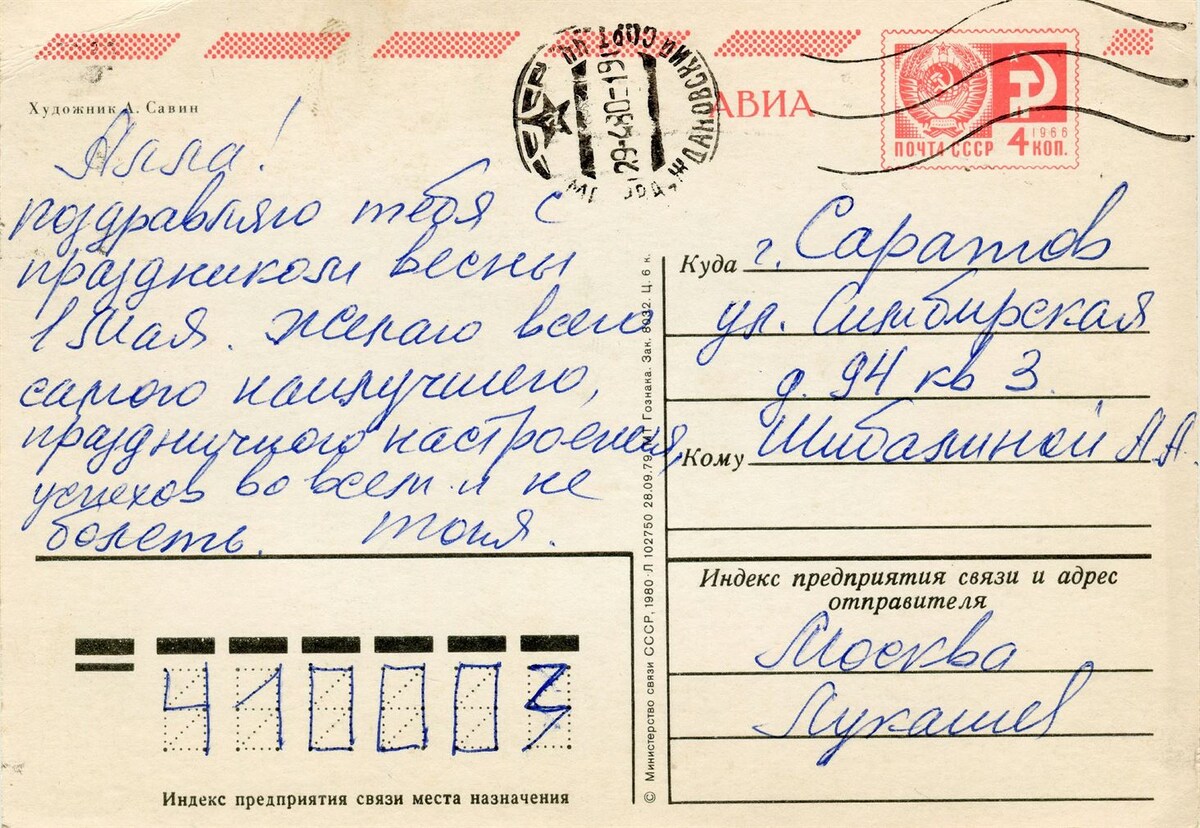 Художник А. Савин
АВИА
ПОЧТА СССР
1966
4 КОП.
СССР
29-480-19
ЖДАНОВСКИЙ СОРТ
Алла!
поздравляю тебя с
праздником весны
1 Мая. Желаю всего
самого наилучшего,
праздничного настроения,
успехов во всем и не
болеть. Тоня.
Куда г. Саратов
ул. Симбирская
д. 94 кв 3.
Кому Шибалиной А А.
Индекс предприятия связи и адрес
отправителя
Москва
Лукашев
© Министерство связи СССР, 1980. Л 102750 28.09.79. Гознака. Зак. 8032. Ц. 6 к.
410003
Индекс предприятия связи места назначения